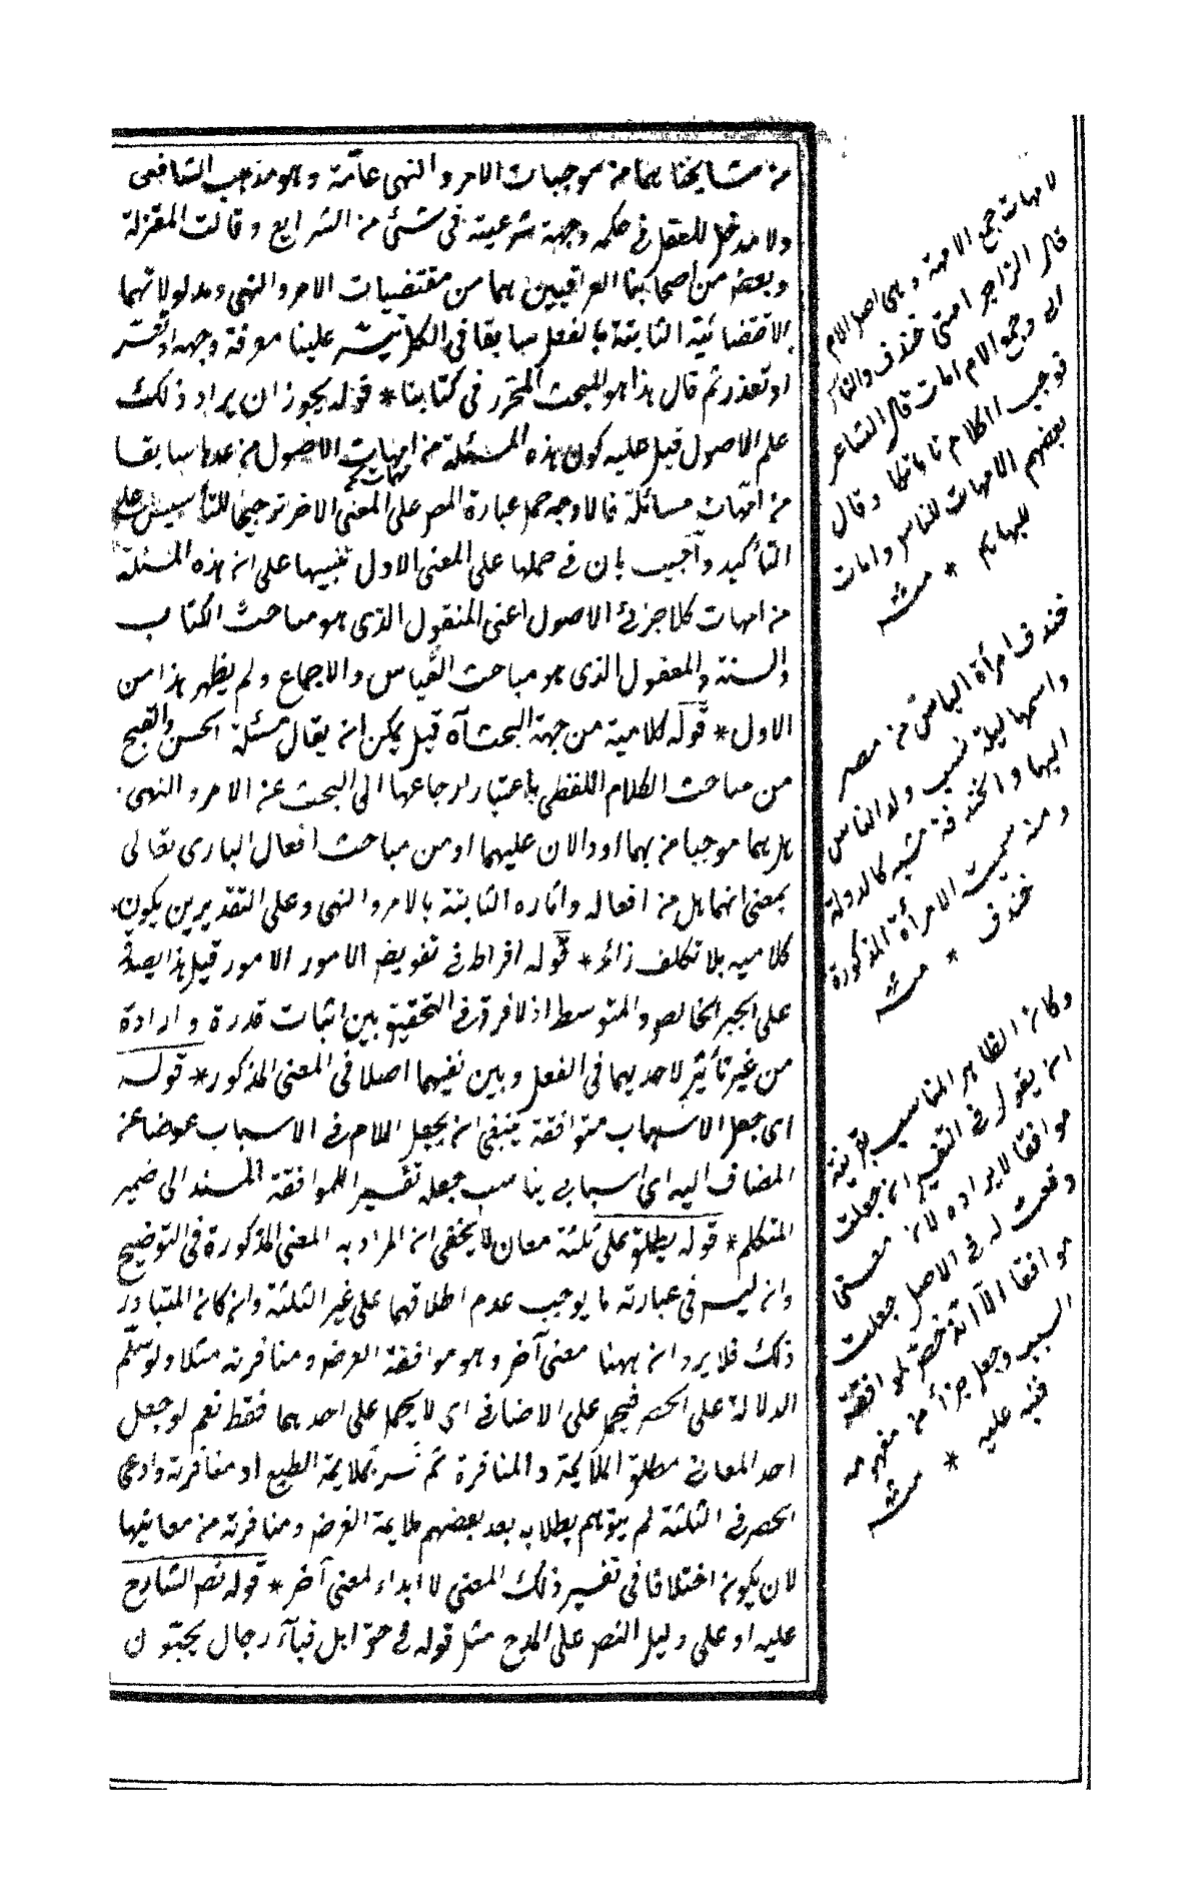 من مشايخنا هما من موجبات الامر والنهى عامّة وهو مذهب الشافعى
ولا مدخل للعقل فى حكمه وجهة شرعيته فى شئ من الشرايع وقالت المعتزلة
وبعض من اصحابنا العراقيين هما من مقتضيات الامر والنهى ومدلولاتهما
الاقتضائية الثابتة بالفعل سابقا فى الكل تيسر علينا معرفة وجهه او تعسّر
او تعذر ثم قال هذا هو المبحث المتحرر فى كتابنا * قوله يجوز ان يراد ذلك
علم الاصول قيل عليه كون هذه المسئلة من امهات الاصول من عدها سابقا
من امهات مسائله فالاوجه حمل عبارة المص على المعنى الاخر ترجيحا للتأسيس على
التأكيد وأجيب بان فى حملها على المعنى الاول تنبيها على ان هذه المسئلة
من امهات كلا جزئى الاصول اعنى المنقول الذى هو مباحث الكتاب
والسنة والمعقول الذى هو مباحث القياس والاجماع ولم يظهر هذا من
الاول * قوله كلامية من جهة البحث آه قيل يمكن ان يقال مسئلة الحسن والقبح
من مباحث الكلام اللفظى باعتبار ارجاعها الى البحث عن الامر والنهى
هل هما موجبا من بهما او دالان عليهما او من مباحث افعال البارى تعالى
بمعنى انهما هل من افعاله وآثاره الثابتة بالامر والنهى وعلى التقديرين يكون
كلاميه بلا تكلف زائد * قوله افراط فى تفويض الامور الامور قيل هذا يصدق
على الجبر الخالص والمتوسط اذ لا فرق فى التحقيق بين اثبات قدرة وارادة
من غير تأثير لاحديهما فى الفعل وبين نفيهما اصلا فى المعنى المذكور * قوله
اى جعل الاسباب متوافقة ينبغى ان يجعل اللام فى الاسباب عوضا عن
المضاف اليه اى اسبابى يناسب جعله تفسيرا للموافقة المسند الى ضمير
المتكلم * قوله يطلق على ثلثة معان لا يخفى ان المراد به المعنى المذكورة فى التوضيح
وان ليس فى عبارته ما يوجب عدم اطلاقهما على غير الثلثة وان كان المتبادر
ذلك فلا يرد ان ههنا معنى آخر وهو موافقة الغرض ومنافرته مثلا ولو سلّم
الدلالة على الحصر فيحمل على الاضافى اى لا يحمل على احديهما فقط نعم لو جعل
احد المعانى مطلق الملايمة والمنافرة ثم فسر بملايمة الطبع او منافرته وادعى
الحصر فى الثلثة لم يتوهم بطلانه بعد بعضهم ملايمة الغرض ومنافرته من معانيها
لان يكون اختلافا فى تفسير ذلك المعنى لا ابداء لمعنى آخر * قوله نص الشارع
عليه او على دليل النص على المدح مثل قوله فى حق اهل قباء رجال يحبّون
لامهات جمع الامهة وهى اصل الام
قال الراجز امهتى خندف والياس
ابى وجمع الام امات قال الشاعر
بعضهم الامهات للناس وامات
للبهائم * منه
خندف امرأة الياس من مضر
واسمها ليلة نسب ولد الياس
اليها والخندفة مشية كالهرولة
ومنه سميت الامرأة المذكورة
خندف * منه
وكان الظاهر المناسب بقرينة
ان يقول فى التفسير ان جعلت
موافقا لايراده لان معنى
وقعت له فى الاصل جعلت
موافقا الا انه خص بموافقة
السبب وجعل جزأ من مفهومه
فنبه عليه * منه